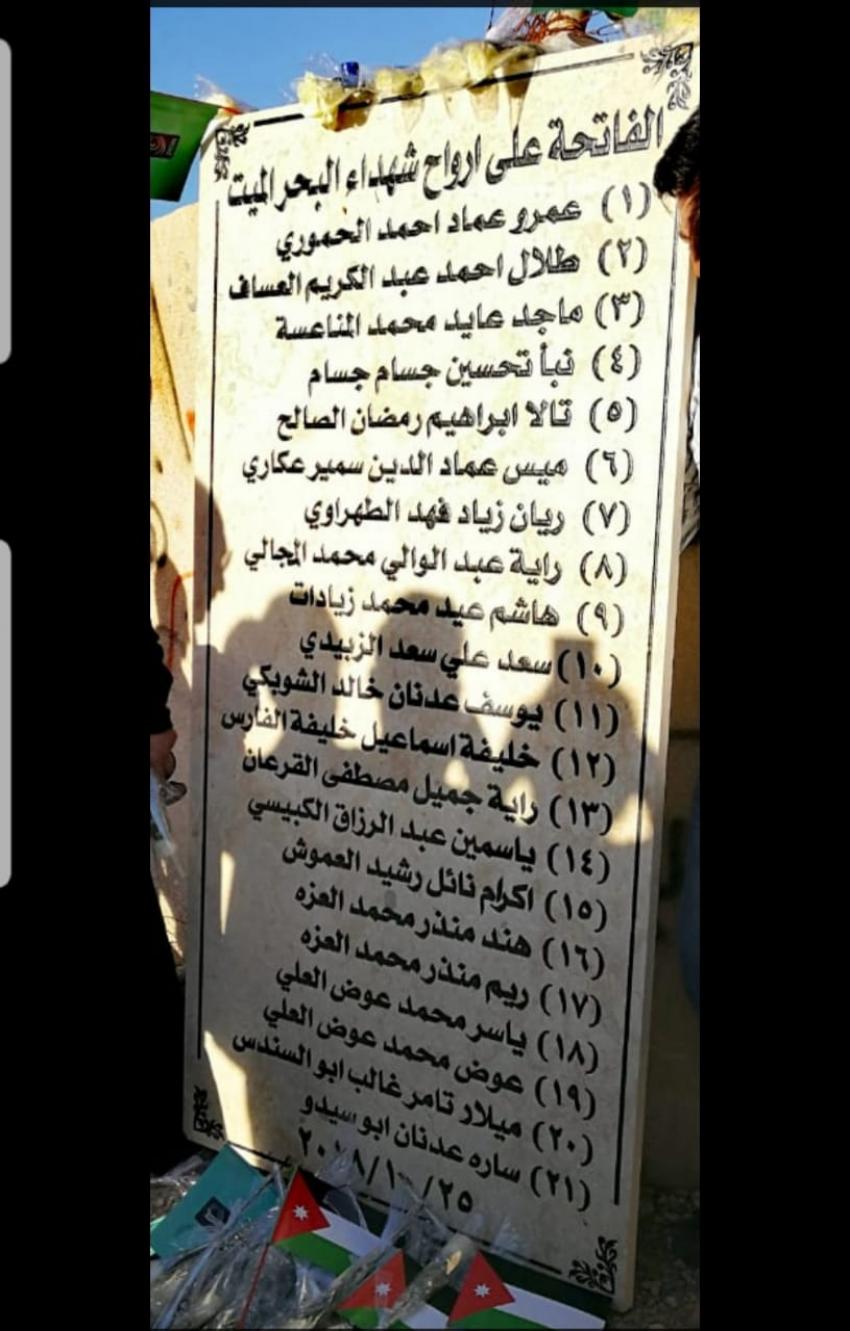 الفاتحة على ارواح شهداء البحر الميت
(١) عمرو عماد احمد الحموري
(٢) طلال احمد عبد الكريم العساف
(٣) ماجد عايد محمد المناعسة
(٤) نبأ تحسين جسام جسام
(٥) تالا ابراهيم رمضان الصالح
(٦) ميس عماد الدين سمير عكاري
(٧) ريان زياد فهد الطهراوي
(٨) راية عبد الوالي محمد المجالي
(٩) هاشم عيد محمد زيادات
(١٠) سعد علي سعد الزبيدي
(١١) يوسف عدنان خالد الشوبكي
(١٢) خليفة اسماعيل خليفة الفارس
(١٣) راية جميل مصطفى القرعان
(١٤) ياسمين عبد الرزاق الكبيسي
(١٥) اكرام نائل رشيد العموش
(١٦) هند منذر محمد العزه
(١٧) ريم منذر محمد العزه
(١٨) ياسر محمد عوض العلي
(١٩) عوض محمد عوض العلي
(٢٠) ميلار تامر غالب ابو السندس
(٢١) ساره عدنان ابو سيدو
٢٠١٨/١٠/٢٥